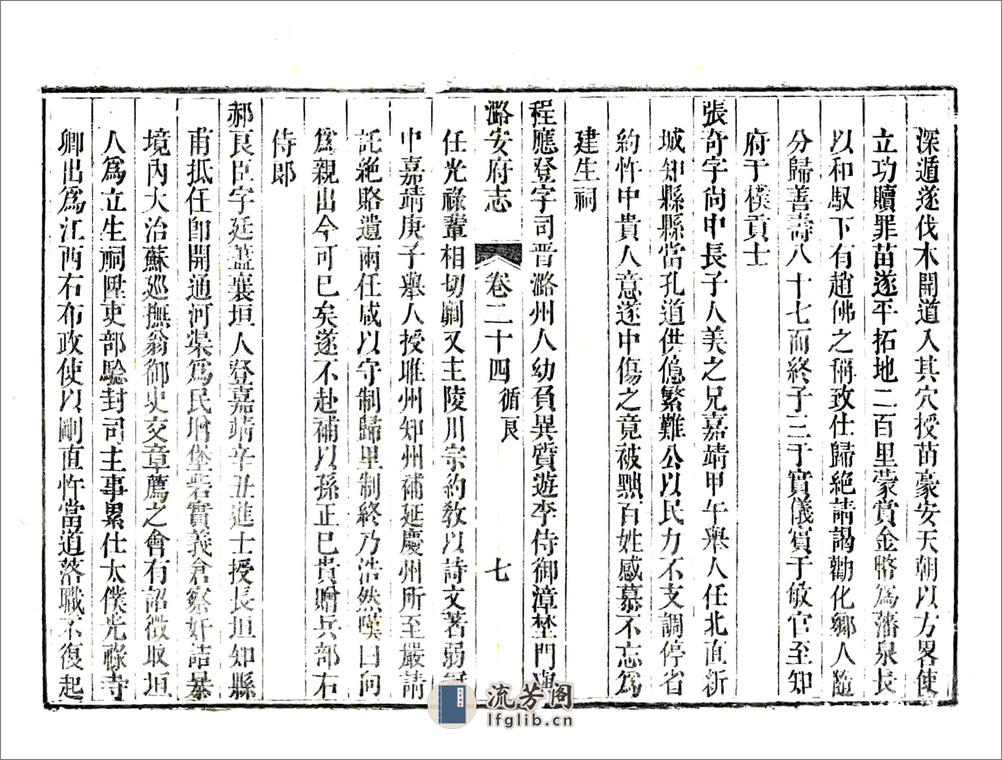 深遁遂伐木開道入其穴授苗豪安天朝以方畧使
立功贖罪苗遂平拓地二百里蒙賞金幣為藩臬長
以和馭下有趙佛之稱致仕歸絶請謁勸化鄉人隨
分歸善壽八十七而終子三于賓儀賓于敏官至知
府于樸貢士
張奇字尚中長子人美之兄嘉靖甲午舉人任北直新
城知縣縣當孔道供億繁難公以民力不支調停省
約忤中貴人意遂中傷之竟被黜百姓感慕不忘爲
建生祠
程應登字司晋潞州人幼負異質遊李侍御漳埜門與
潞安府志 卷二十四 循良 七
任光祿輩相切劘又主陵川宗約敎以詩文著弱冠
中嘉靖庚子舉人授睢州知州補延慶州所至嚴請
託絶賂遺兩任咸以守制歸里制終乃浩然嘆曰向
爲親出今可已矣遂不赴補以孫正巳貴贈兵部右
侍郎
郝良臣字廷藎襄垣人登嘉靖辛丑進士授長垣知縣
甫抵任卽開通河渠爲民增堡砦實義倉察奸詰暴
境內大治蘇巡撫翁御史交章薦之會有詔徴取垣
人爲立生祠陞吏部騐封司主事累仕太僕光祿寺
卿出爲江西右布政使以剛直忤當道落職不復起
流芳阁
lfglib.cn